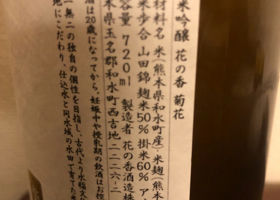 米吟醸 花の香 菊花
材料名 米(熊本県和水町産)、米麹(熊本
米歩合 山田錦麹米50% 掛米60% ア
容量 720ml 製造者 花の香酒造株
本県玉名郡和水町西吉地2226-2
酒は20歳になってから。妊娠中や授乳期の飲酒はお控
一無二の独自の個性を目指し、古代より水稲文化
地にこだわり、仕込水と同水域の水田で育てた